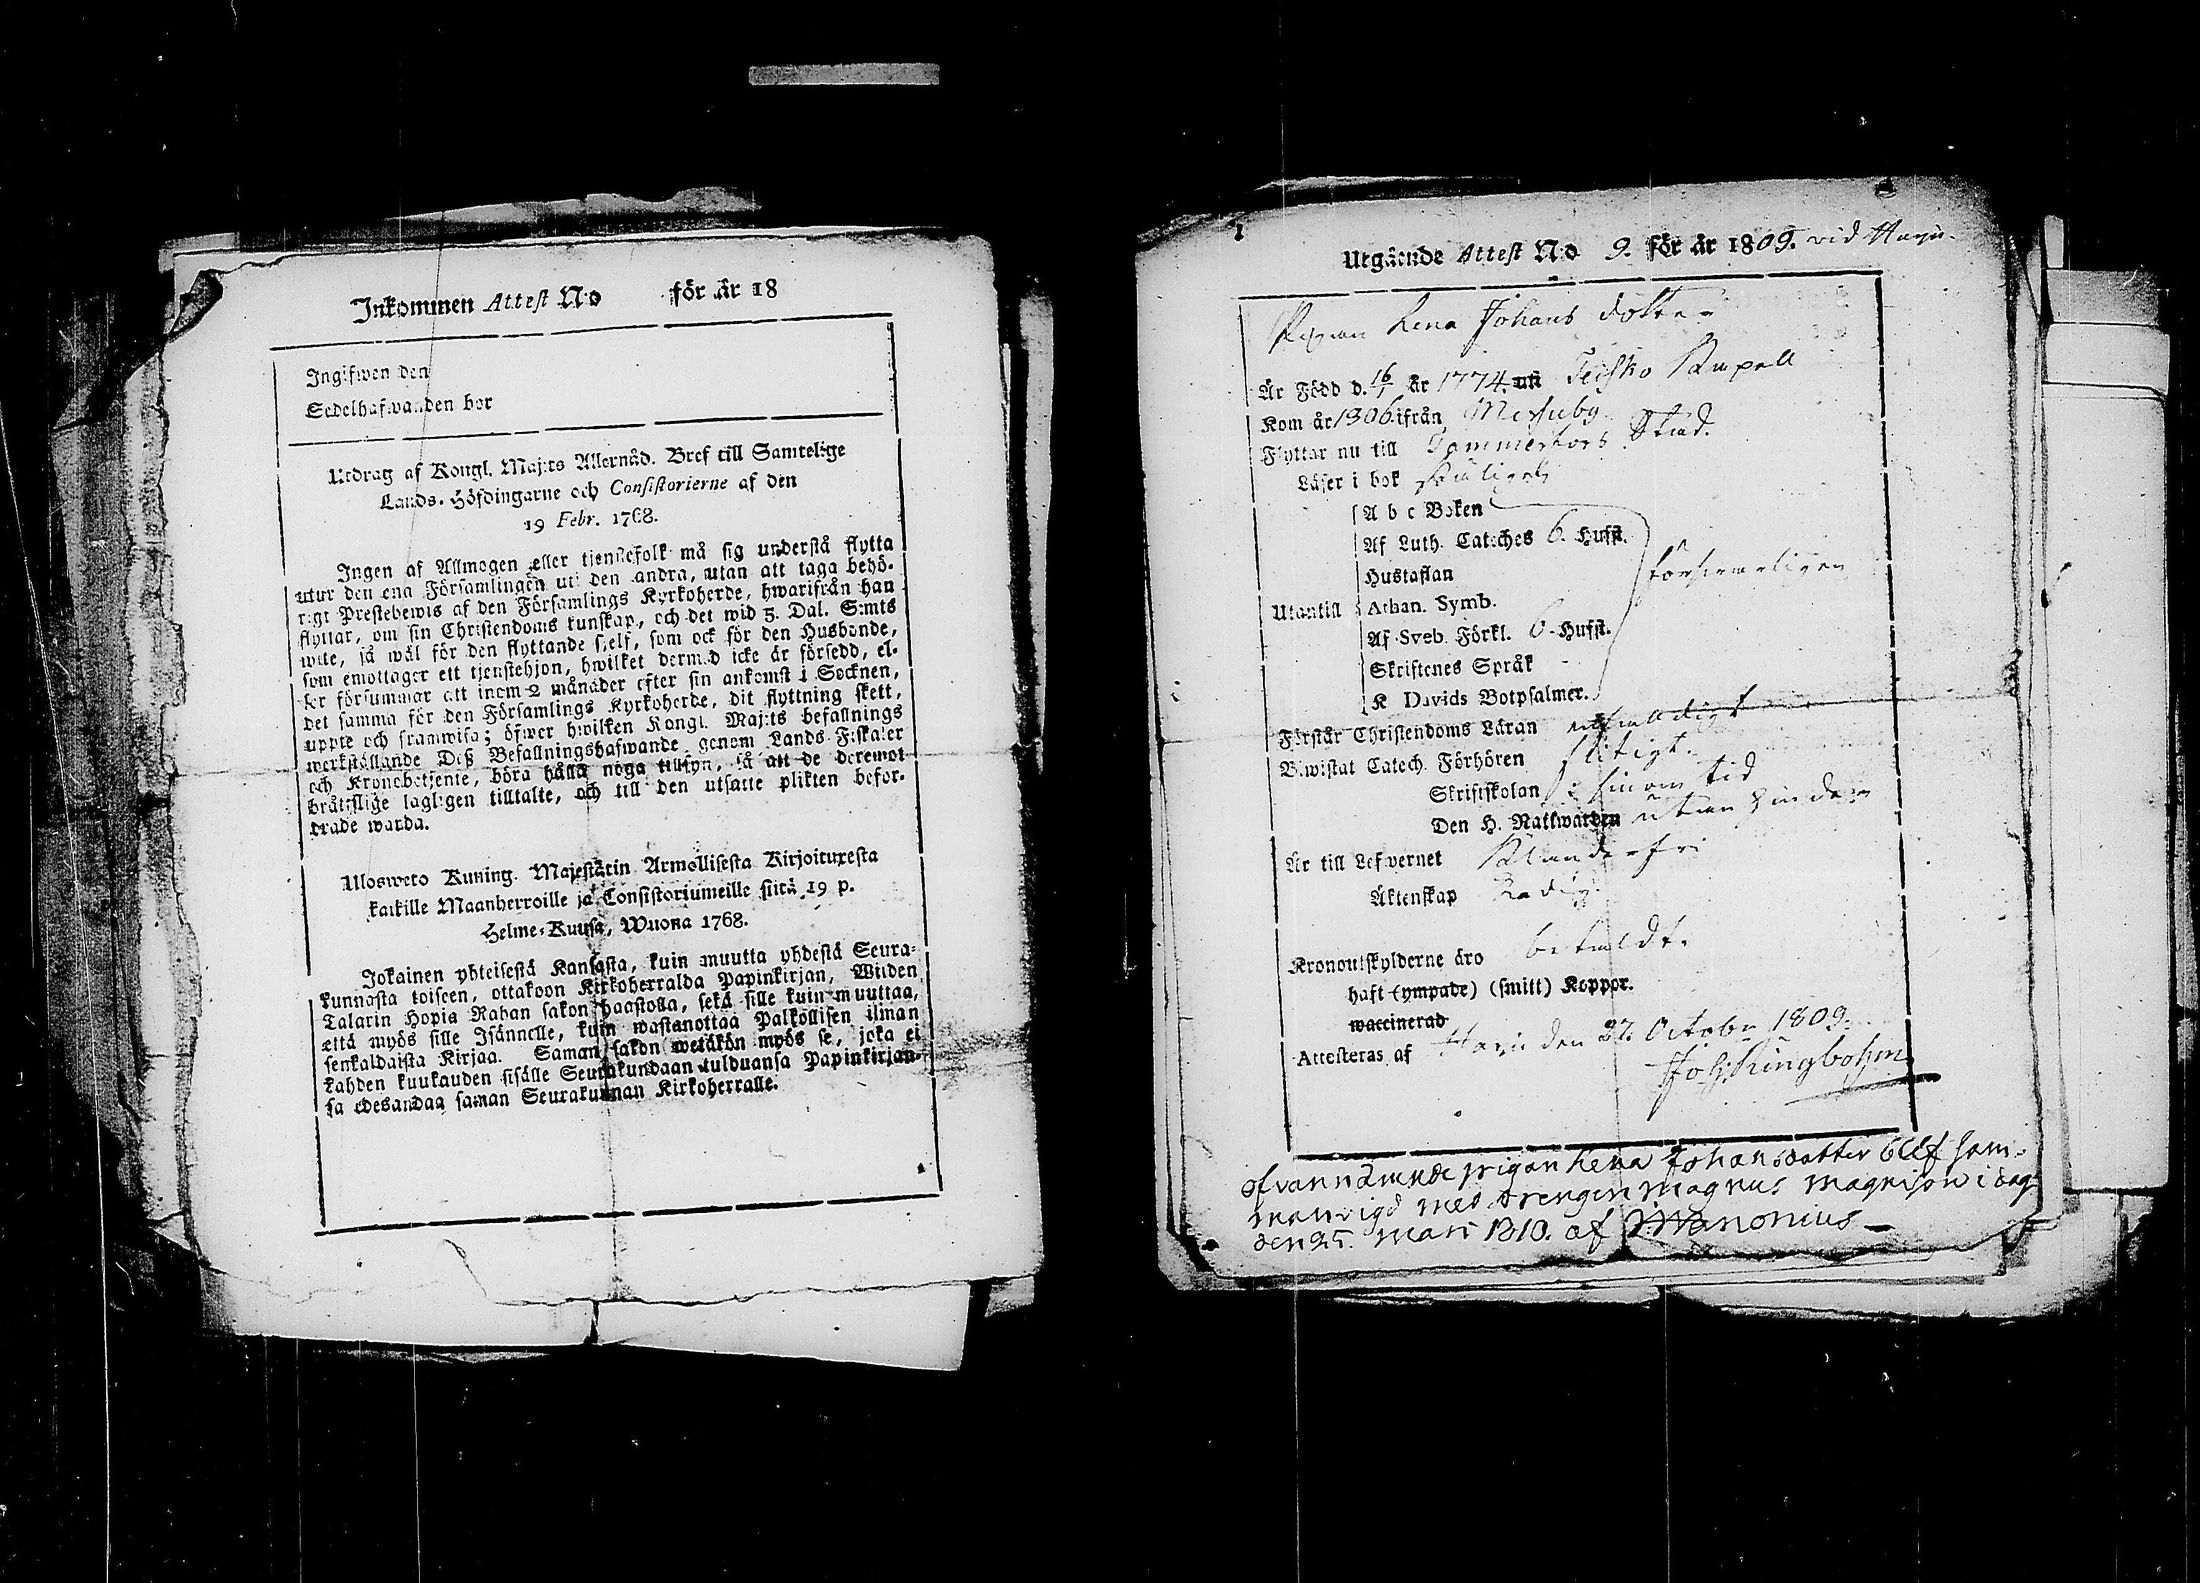 Inkommen Attest No för år 18
Ingifwen den
Sedelhafwanden bor
Utdrag af Kongl. Maj:ts Allernåd. Bref till Samtelige
Lands-Höfdingarne och Consistorierne af den
19 Febr. 1768.
Ingen af Allmogen eller tjenstefolk må sig understå flytta
utur den ena Församlingen uti den andra, utan att taga behö-
rigt Prestebewis af den Församlings Kyrkoherde, hwarifrån han
flyttar, om sin Christendoms kunskap, och det wid 5. Dal. S:mts
wite, så wäl för den flyttande sjelf, som ock för den Husbonde,
som emottager ett tjenstehjon, hwilket dermed icke är försedd, el-
ler försummar att inom 2 månader efter sin ankomst i Socknen,
det samma för den Församlings Kyrkoherde, dit flyttning skett,
uppte och framwisa; öfwer hwilken Kongl. Maj:ts befallnings
werkställande Deß Befallningshafwande genom Lands-Fiskaler
och Kronobetjente, böra hålla noga tillsyn, så att de deremot
bråtslige lagligen tilltalte, och till den utsatte plikten befor-
drade warda.
Ulosweto Kuning. Majestätin Armollisesta Kirjoituxesta
kaikille Maanherroille ja Consistoriumeille siitä 19 p.
Helme-Kuusa, Wuona 1768.
Jokainen yhteisestä Kansasta, kuin muutta yhdestä Seura-
kunnasta toiseen, ottakoon Kirkoherralda Papinkirjan, Wiiden
Talarin Hopia Rahan sakon haastolla, sekä sille kuin muuttaa,
että myös sille Isännelle, kuin wastanottaa Palkollisen ilman
senkaldaista Kirjaa. Saman sakon wetäkön myös se, joka ei
kahden kuukauden sisälle Seurakundaan tulduansa Papinkirjan-
sa edesandaa saman Seurakunnan Kirkoherralle.
1
Utgående Attest No 9. för år 1809. vid Harju.
Pigan Lena Johans dotter
Är Född d. 16/1 år 1774 uti Teisko Kapell
Kom år 1806 ifrån Messuby
Flyttar nu till Tammerfors Stad.
Läser i bok
A b c Boken
Af Luth. Cateches 6. Hufst.
Hustaflan
försvarligen
Utantill Athan. Symb.
Af Sveb. Förkl. 6. Hufst.
Skriftenes Språk
K Davids Botpsalmer.
Förstår Christendoms Läran
Bewistat Catech. Förhören flitigt.
Skriftskolan i sinom tid
Den H. Nattwarden utan hinder
Är till Lefwernet Klanderfri
Äktenskap Ledig.
Kronoutskylderne äro betaldt.
haft (ympade) (smitt) Koppor.
waccinerad
Attesteras af Harju den 27. Octobr 1809.
Joh: Ringbohm
ofvannämnde pigan Lena Johansdotter blef sam-
manvigd med drengen Magnus Magnison i dag
den 25. mars 1810. af